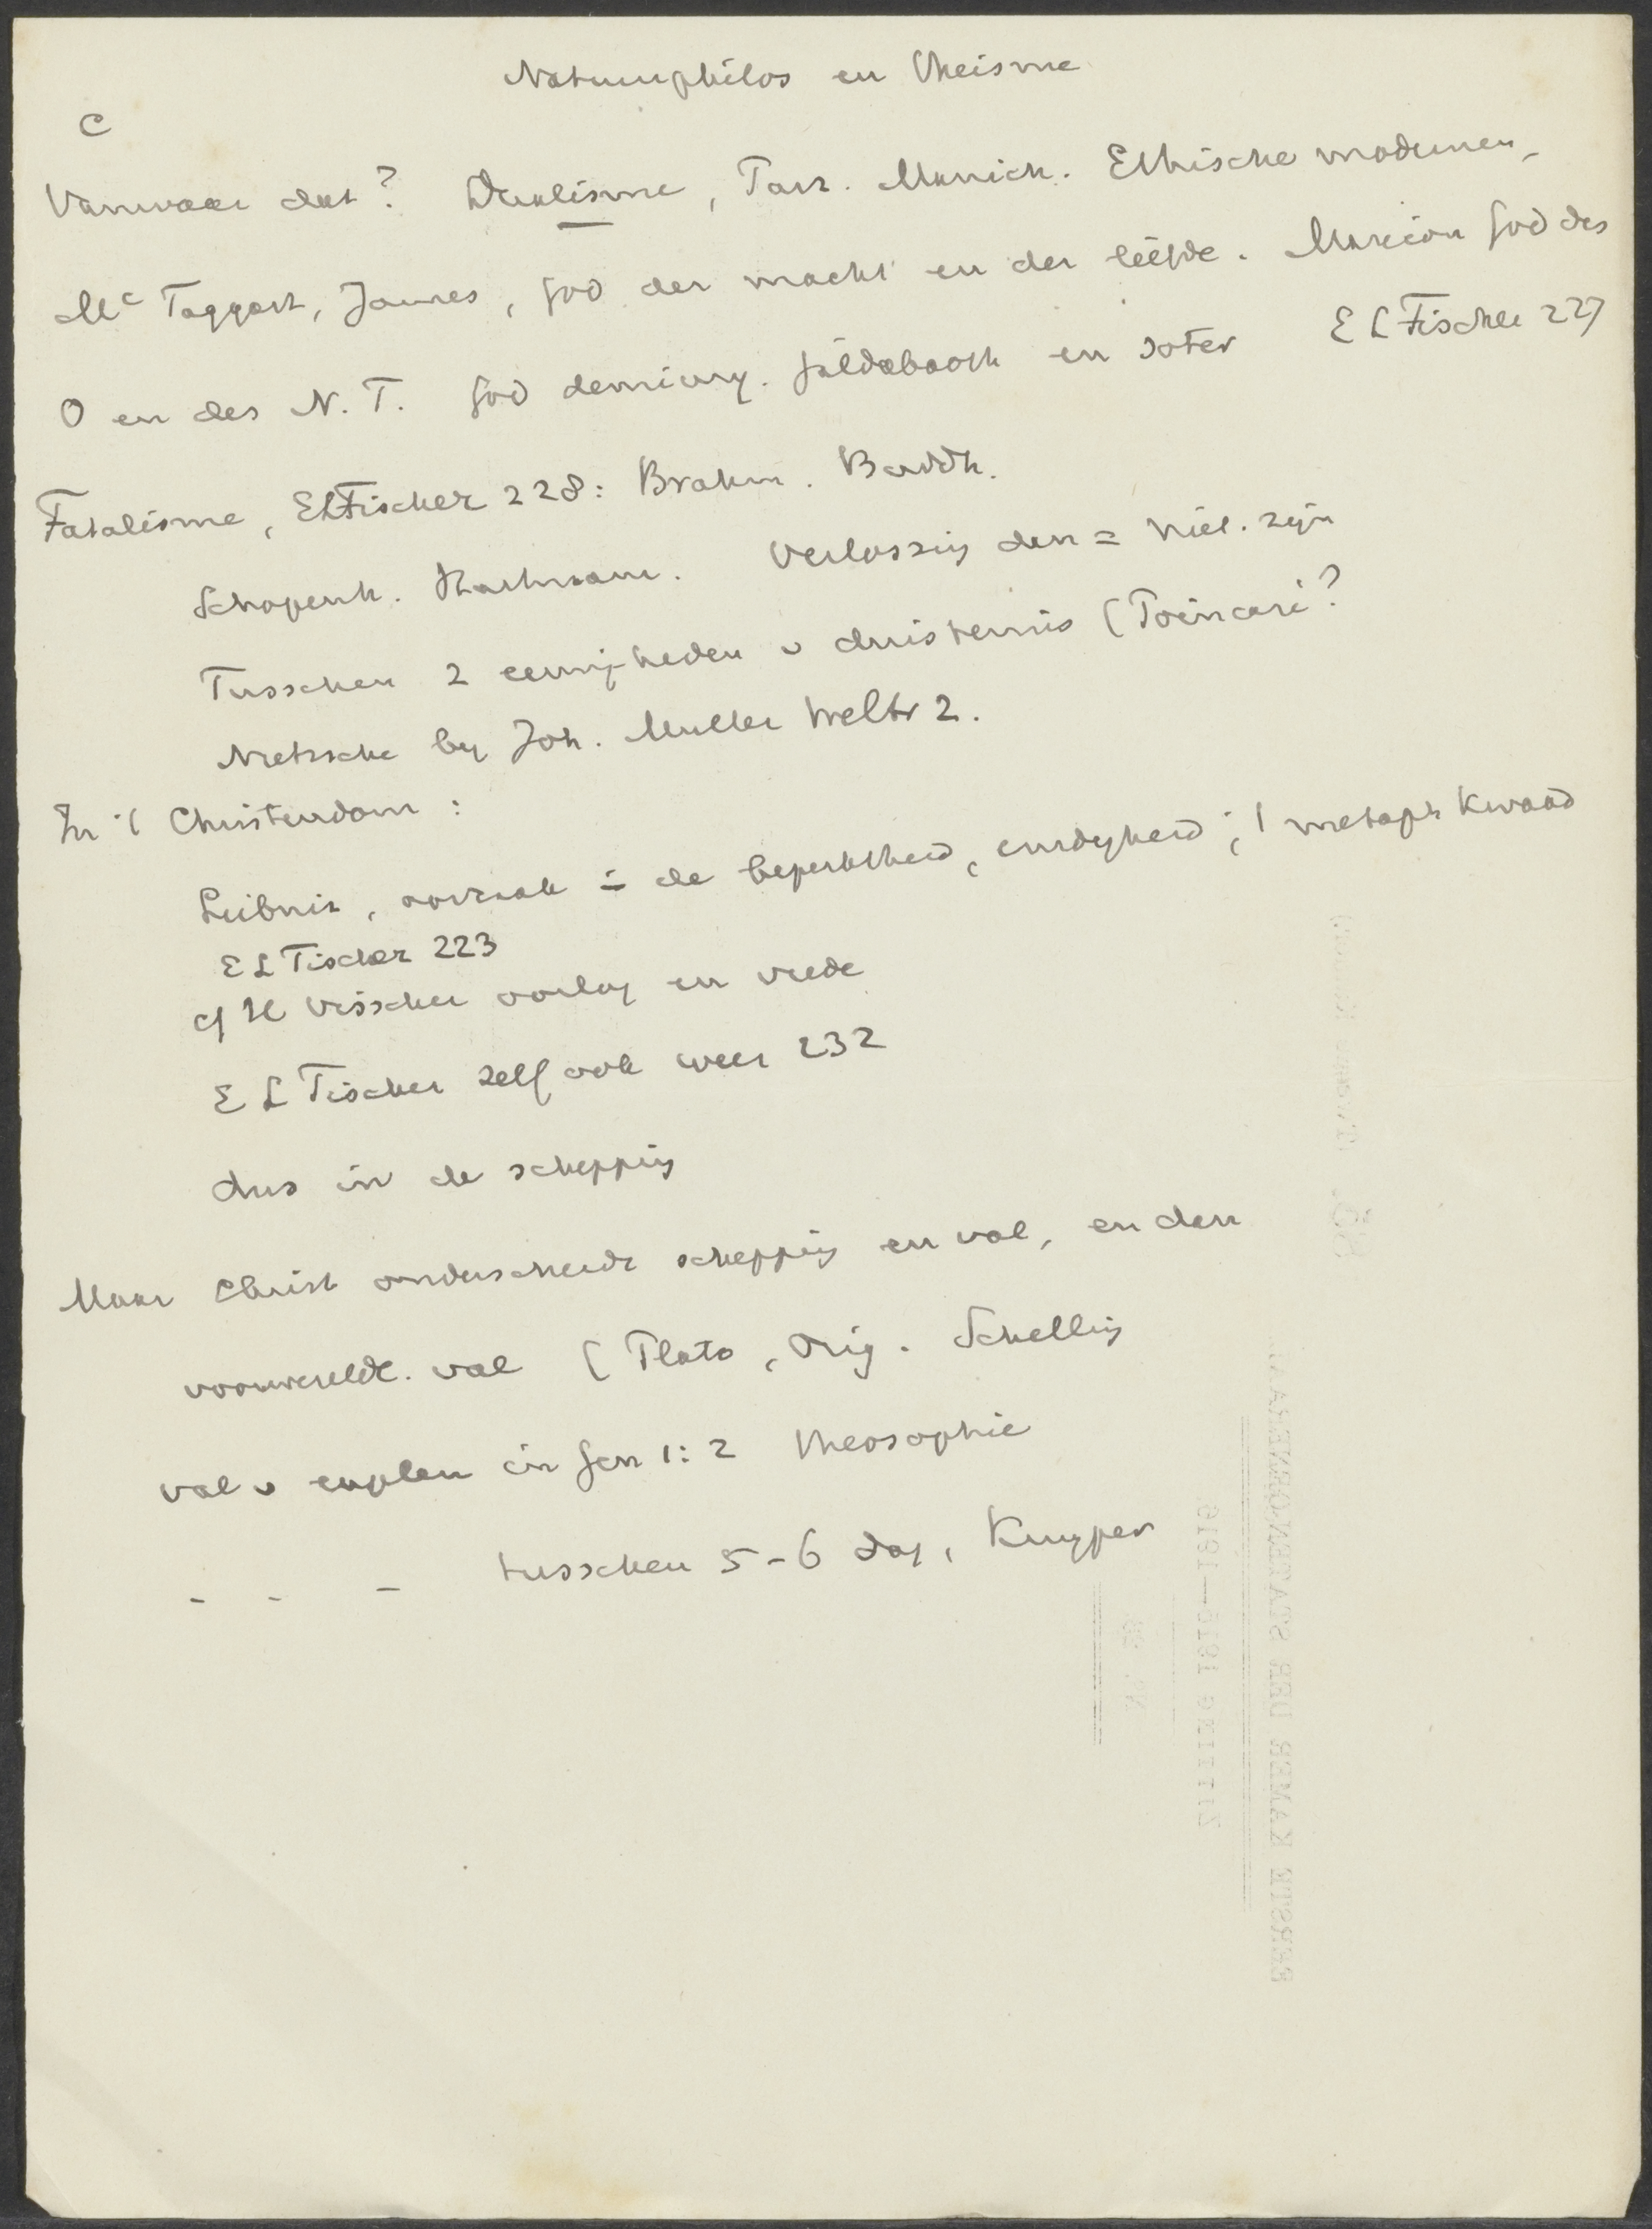 Natuurphilos en Theisme
C
Vanwaar dat? Dualisme, Pars. Manich. Ethische modernen,
Mc Taggart, James, God der macht en der liefde. Marcion God des
O en des N.T. God demiurg. Jaldabaoth en soter E L Fischer 227
Fatalisme, EL Fischer 228: Brahm. Buddh.
Schopenh. Hartmann. Verlossing dan = niet. zijn
Tusschen 2 eeuwigheden v duisternis (Poincaré?
Nietzsche by Joh. Muller Weltr 2.
In 't Christendom:
Leibniz, oorzaak = de beperktheid, eindigheid; 't metaph kwaad
E L Fischer 223
cf H Visscher oorlog en vrede
E L Fischer zelf ook weer 232
dus in de schepping
Maar Christ onderscheidt schepping en val, en dan
voorwereldl. val (Plato, Orig. Schelling
val v engelen in Gen 1:2 Theosophie
- - - tusschen 5-6 dag, Kuyper
EERSTE KAMER DER STATEN-GENERAAL
ZITTING 1915—1916.